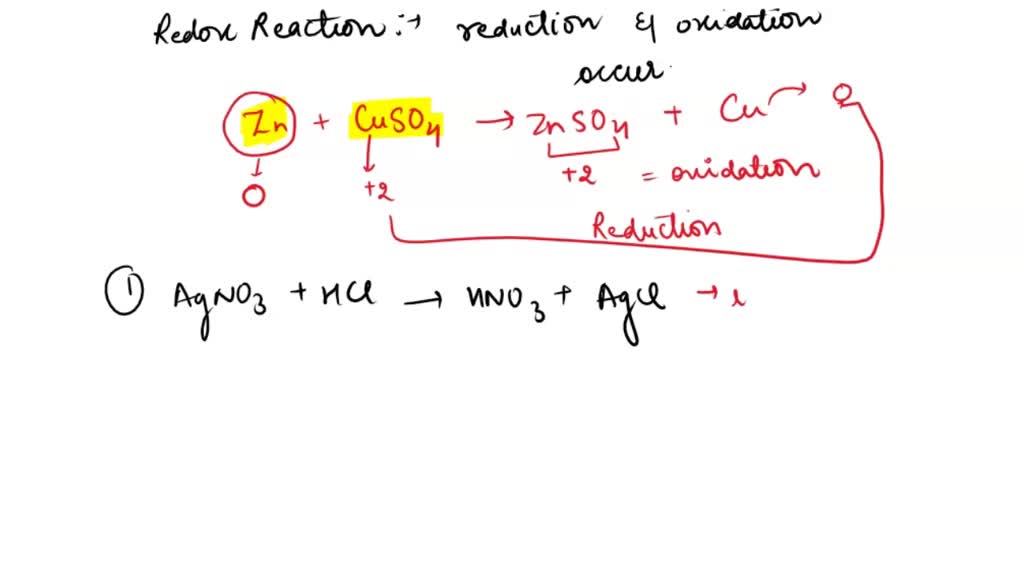 Redox Reaction :→ reduction & oxidation
occur
Zn + CuSO4 → ZnSO4 + Cu → 0
0 +2 +2 = oxidation
Reduction
① AgNO3 + HCl → HNO3 + AgCl →